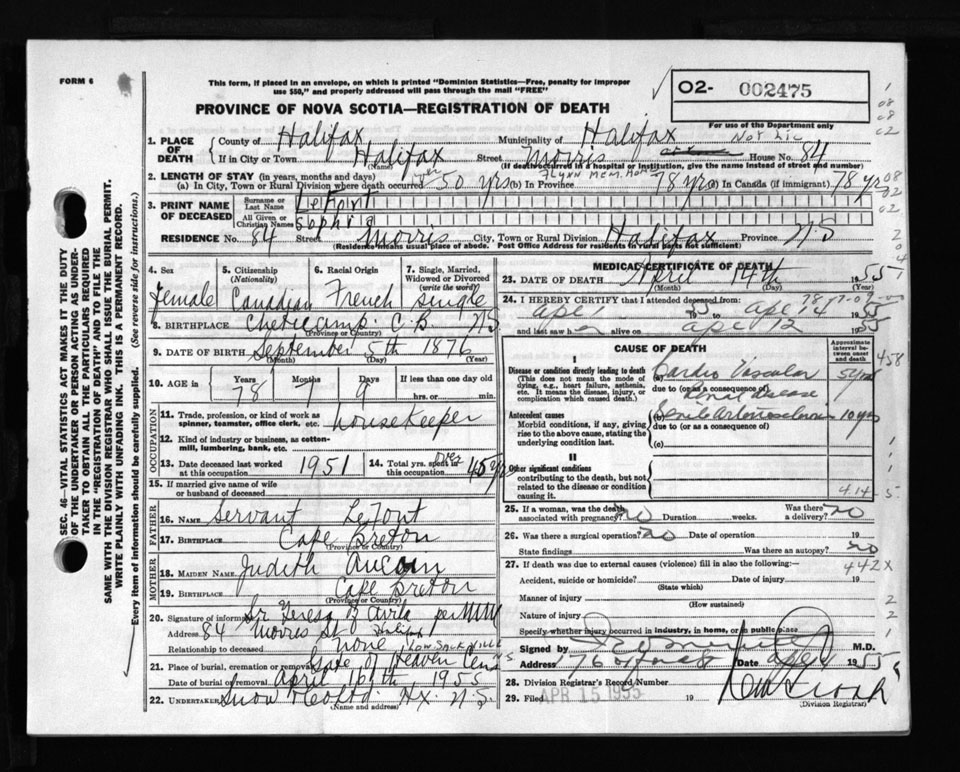 FORM 6
This form, if placed in an envelope, on which is printed "Dominion Statistics—Free, penalty for improper
use $50," and properly addressed will pass through the mail "FREE"
PROVINCE OF NOVA SCOTIA—REGISTRATION OF DEATH
O2- 002475
For use of the Department only
Not Lic
1. PLACE OF DEATH
County of Halifax Municipality of Halifax
If in City or Town Halifax Street Morris House No. 84
(Name) (If death occurred in a hospital or institution, give its name instead of street and number)
2. LENGTH OF STAY (in years, months and days) Flynn Mem. Home
(a) In City, Town or Rural Division where death occurred over 50 yrs (b) In Province 78 yrs (c) In Canada (if immigrant) 78 yr
3. PRINT NAME OF DECEASED
Surname or Last Name LeFort
All Given or Christian Names Sophia
RESIDENCE No. 84 Street Morris City, Town or Rural Division Halifax Province N.S
(Residence means usual place of abode. Post Office Address for residents in rural parts not sufficient)
4. Sex female
5. Citizenship (Nationality) Canadian
6. Racial Origin French
7. Single, Married, Widowed or Divorced (write the word) single
8. BIRTHPLACE Cheticamp. C.B. N.S
(Province or Country)
9. DATE OF BIRTH September 5th 1876
(Month) (Day) (Year)
10. AGE in Years 78 Months 7 Days 9 If less than one day old
hrs. or min.
OCCUPATION
11. Trade, profession, or kind of work as
spinner, teamster, office clerk, etc. housekeeper
12. Kind of industry or business, as cotton-
mill, lumbering, bank, etc.
13. Date deceased last worked at this occupation 1951
14. Total yrs. spent in this occupation over 45 yrs
15. If married give name of wife
or husband of deceased
FATHER
16. Name Servant LeFort
17. Birthplace Cape Breton
(Province or Country)
MOTHER
18. Maiden Name Judith Aucoin
19. Birthplace Cape Breton
(Province or Country)
20. Signature of informant Sr Teresa of Avila per MM
Address 84 Morris St Halifax
Relationship to deceased none
21. Place of burial, cremation or removal Gate of Heaven Cem
Date of burial or removal April 16th, 1955
22. Undertaker Snow & Co Ltd. Hx. N.S.
(Name and address)
MEDICAL CERTIFICATE OF DEATH
23. DATE OF DEATH April 14th 1955
(Month) (Day)
24. I HEREBY CERTIFY that I attended deceased from:
Apr 1 1955 to Apr 14 1955
and last saw her alive on Apr 12 1955
CAUSE OF DEATH
Approximate interval between onset and death
I
Disease or condition directly leading to death
(This does not mean the mode of
dying, e.g., heart failure, asthenia,
etc. It means the disease, injury, or
complication which caused death.)
(a) Cardio Vascular
due to (or as a consequence of)
Renal Disease
5 yrs
Antecedent causes
Morbid conditions, if any, giving
rise to the above cause, stating the
underlying condition last.
(b) Senile Arteriosclerosis 10 yrs
due to (or as a consequence of)
(c)
II
Other significant conditions
contributing to the death, but not
related to the disease or condition
causing it.
4.14
25. If a woman, was the death
associated with pregnancy? No Duration weeks. Was there a delivery? no
26. Was there a surgical operation? no Date of operation 19
State findings Was there an autopsy? no
27. If death was due to external causes (violence) fill in also the following: 442X
Accident, suicide or homicide? Date of injury 19
(State which)
Manner of injury
(How sustained)
Nature of injury
Specify whether injury occurred in industry, in home, or in public place
Signed by M.D.
Address 176 Date Apr 1955
28. Division Registrar's Record Number
29. Filed APR 15 1955 19
(Division Registrar)
SEC. 46—VITAL STATISTICS ACT MAKES IT THE DUTY
OF THE UNDERTAKER OR PERSON ACTING AS UNDER-
TAKER TO OBTAIN ALL THE PARTICULARS REQUIRED
IN THE "REGISTRATION OF DEATH" AND TO FILE THE
SAME WITH THE DIVISION REGISTRAR WHO SHALL ISSUE THE BURIAL PERMIT.
WRITE PLAINLY WITH UNFADING INK. THIS IS A PERMANENT RECORD.
Every item of information should be carefully supplied. (See reverse side for instructions.)